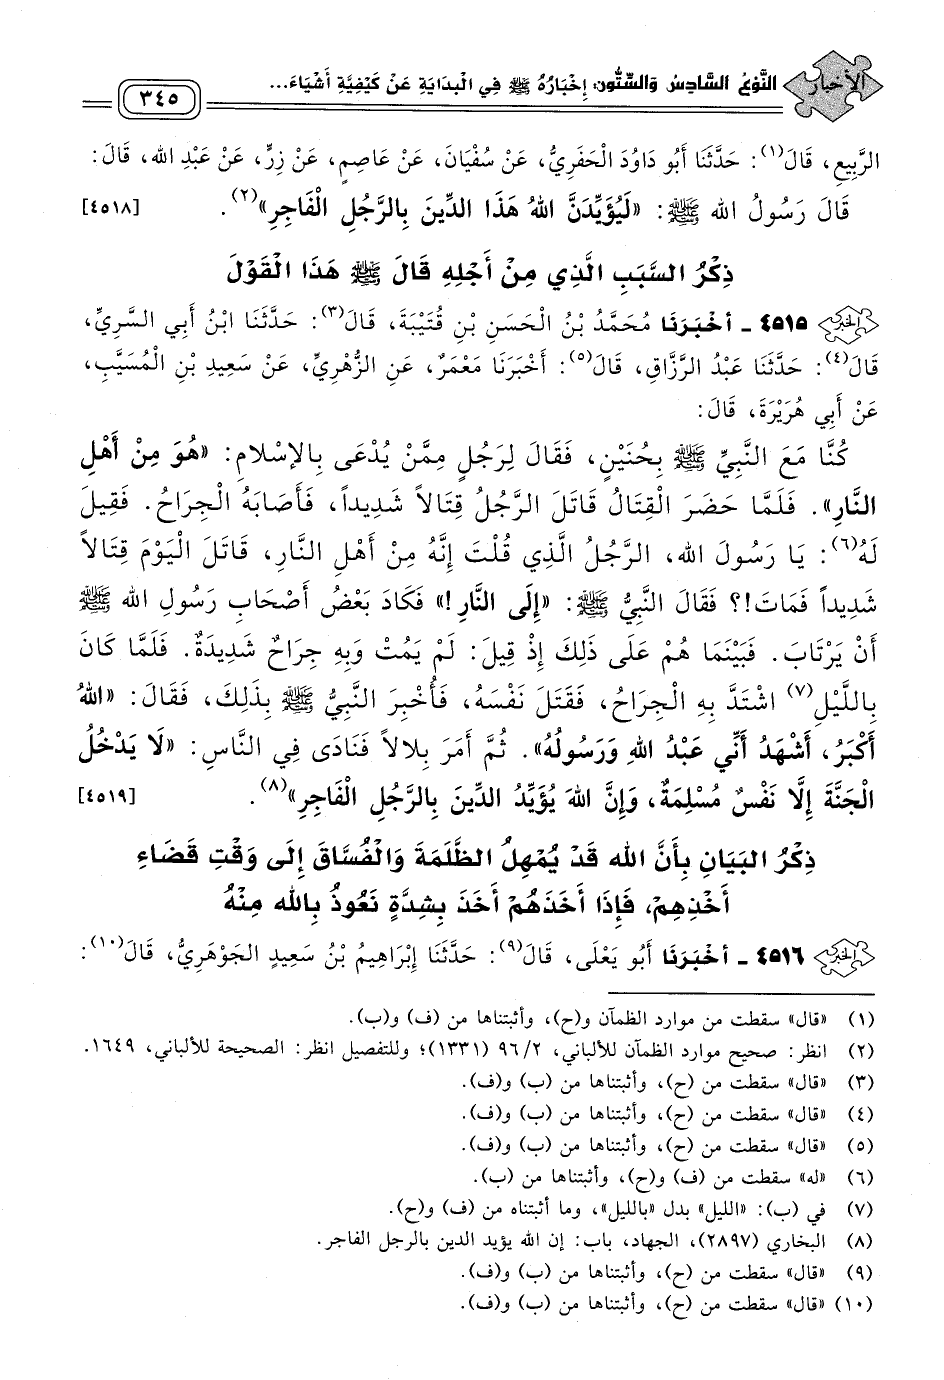 الأخبار
النَّوْعُ السَّادِسُ وَالسِّتُّونَ: إِخْبَارُهُ ﷺ فِي الْبَدَايَةِ عَنْ كَيْفِيَّةِ أَشْيَاءَ...
٣٤٥
الرَّبِيعِ، قَالَ(١): حَدَّثَنَا أَبُو دَاوُدَ الْحَفَرِيُّ، عَنْ سُفْيَانَ، عَنْ عَاصِمٍ، عَنْ زِرٍّ، عَنْ عَبْدِ اللهِ، قَالَ:
قَالَ رَسُولُ اللهِ ﷺ: «لَيُؤَيِّدَنَّ اللهُ هَذَا الدِّينَ بِالرَّجُلِ الْفَاجِرِ»(٢). [٤٥١٨]
ذِكْرُ السَّبَبِ الَّذِي مِنْ أَجْلِهِ قَالَ ﷺ هَذَا الْقَوْلَ
٤٥١٥ - أَخْبَرَنَا مُحَمَّدُ بْنُ الْحَسَنِ بْنِ قُتَيْبَةَ، قَالَ(٣): حَدَّثَنَا ابْنُ أَبِي السَّرِيِّ،
قَالَ(٤): حَدَّثَنَا عَبْدُ الرَّزَّاقِ، قَالَ(٥): أَخْبَرَنَا مَعْمَرٌ، عَنِ الزُّهْرِيِّ، عَنْ سَعِيدِ بْنِ الْمُسَيَّبِ،
عَنْ أَبِي هُرَيْرَةَ، قَالَ:
كُنَّا مَعَ النَّبِيِّ ﷺ بِحُنَيْنٍ، فَقَالَ لِرَجُلٍ مِمَّنْ يُدْعَى بِالإِسْلَامِ: «هُوَ مِنْ أَهْلِ
النَّارِ». فَلَمَّا حَضَرَ الْقِتَالُ قَاتَلَ الرَّجُلُ قِتَالاً شَدِيداً، فَأَصَابَهُ الْجِرَاحُ. فَقِيلَ
لَهُ(٦): يَا رَسُولَ اللهِ، الرَّجُلُ الَّذِي قُلْتَ إِنَّهُ مِنْ أَهْلِ النَّارِ، قَاتَلَ الْيَوْمَ قِتَالاً
شَدِيداً فَمَاتَ!؟ فَقَالَ النَّبِيُّ ﷺ: «إِلَى النَّارِ!» فَكَادَ بَعْضُ أَصْحَابِ رَسُولِ اللهِ ﷺ
أَنْ يَرْتَابَ. فَبَيْنَمَا هُمْ عَلَى ذَلِكَ إِذْ قِيلَ: لَمْ يَمُتْ وَبِهِ جِرَاحٌ شَدِيدَةٌ. فَلَمَّا كَانَ
بِاللَّيْلِ(٧) اشْتَدَّ بِهِ الْجِرَاحُ، فَقَتَلَ نَفْسَهُ، فَأُخْبِرَ النَّبِيُّ ﷺ بِذَلِكَ، فَقَالَ: «اللهُ
أَكْبَرُ، أَشْهَدُ أَنِّي عَبْدُ اللهِ وَرَسُولُهُ». ثُمَّ أَمَرَ بِلَالاً فَنَادَى فِي النَّاسِ: «لَا يَدْخُلُ
الْجَنَّةَ إِلَّا نَفْسٌ مُسْلِمَةٌ، وَإِنَّ اللهَ يُؤَيِّدُ الدِّينَ بِالرَّجُلِ الْفَاجِرِ»(٨). [٤٥١٩]
ذِكْرُ الْبَيَانِ بِأَنَّ اللهَ قَدْ يُمْهِلُ الظَّلَمَةَ وَالْفُسَّاقَ إِلَى وَقْتِ قَضَاءِ
أَخْذِهِمْ، فَإِذَا أَخَذَهُمْ أَخَذَ بِشِدَّةٍ نَعُوذُ بِاللهِ مِنْهُ
٤٥١٦ - أَخْبَرَنَا أَبُو يَعْلَى، قَالَ(٩): حَدَّثَنَا إِبْرَاهِيمُ بْنُ سَعِيدٍ الْجَوْهَرِيُّ، قَالَ(١٠):
(١) «قال» سقطت من موارد الظمآن و(ح)، وأثبتناها من (ف) و(ب).
(٢) انظر: صحيح موارد الظمآن للألباني، ٩٦/٢ (١٣٣١)؛ وللتفصيل انظر: الصحيحة للألباني، ١٦٤٩.
(٣) «قال» سقطت من (ح)، وأثبتناها من (ب) و(ف).
(٤) «قال» سقطت من (ح)، وأثبتناها من (ب) و(ف).
(٥) «قال» سقطت من (ح)، وأثبتناها من (ب) و(ف).
(٦) «له» سقطت من (ف) و(ح)، وأثبتناها من (ب).
(٧) في (ب): «الليل» بدل «بالليل»، وما أثبتناه من (ف) و(ح).
(٨) البخاري (٢٨٩٧)، الجهاد، باب: إن الله يؤيد الدين بالرجل الفاجر.
(٩) «قال» سقطت من (ح)، وأثبتناها من (ب) و(ف).
(١٠) «قال» سقطت من (ح)، وأثبتناها من (ب) و(ف).